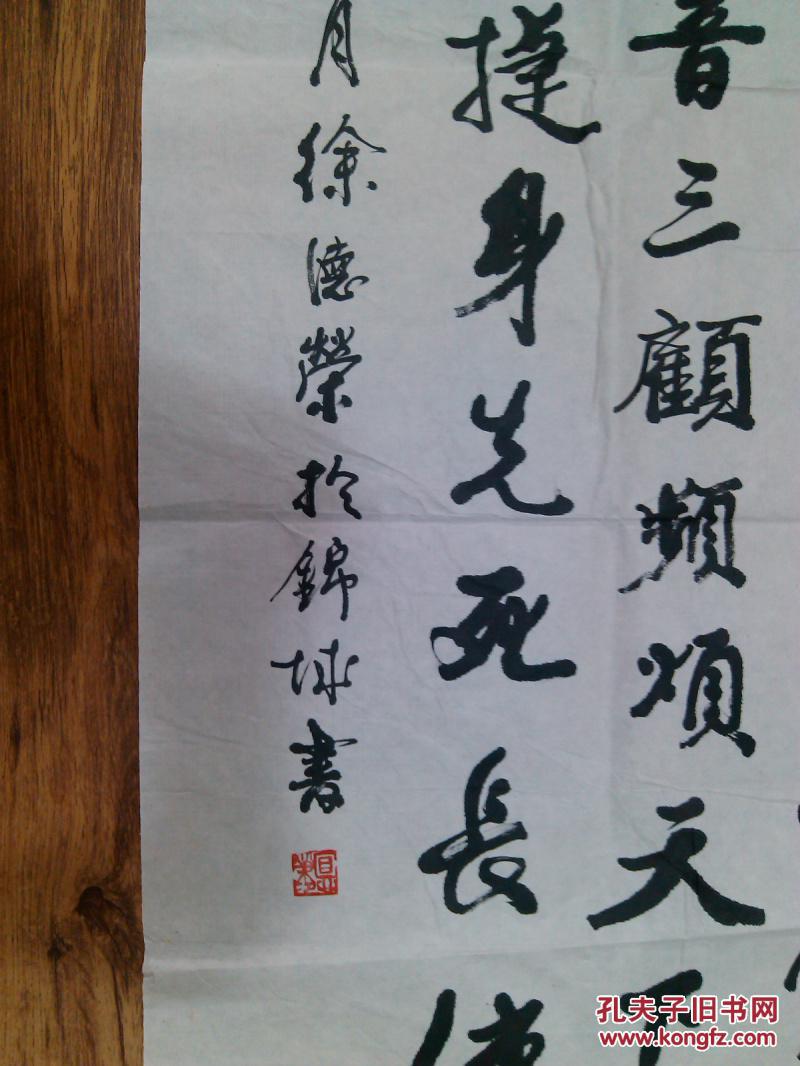 音三顧頻煩天下
捷身先死長使
月徐德榮於錦城書
孔夫子旧书网
www.kongfz.com